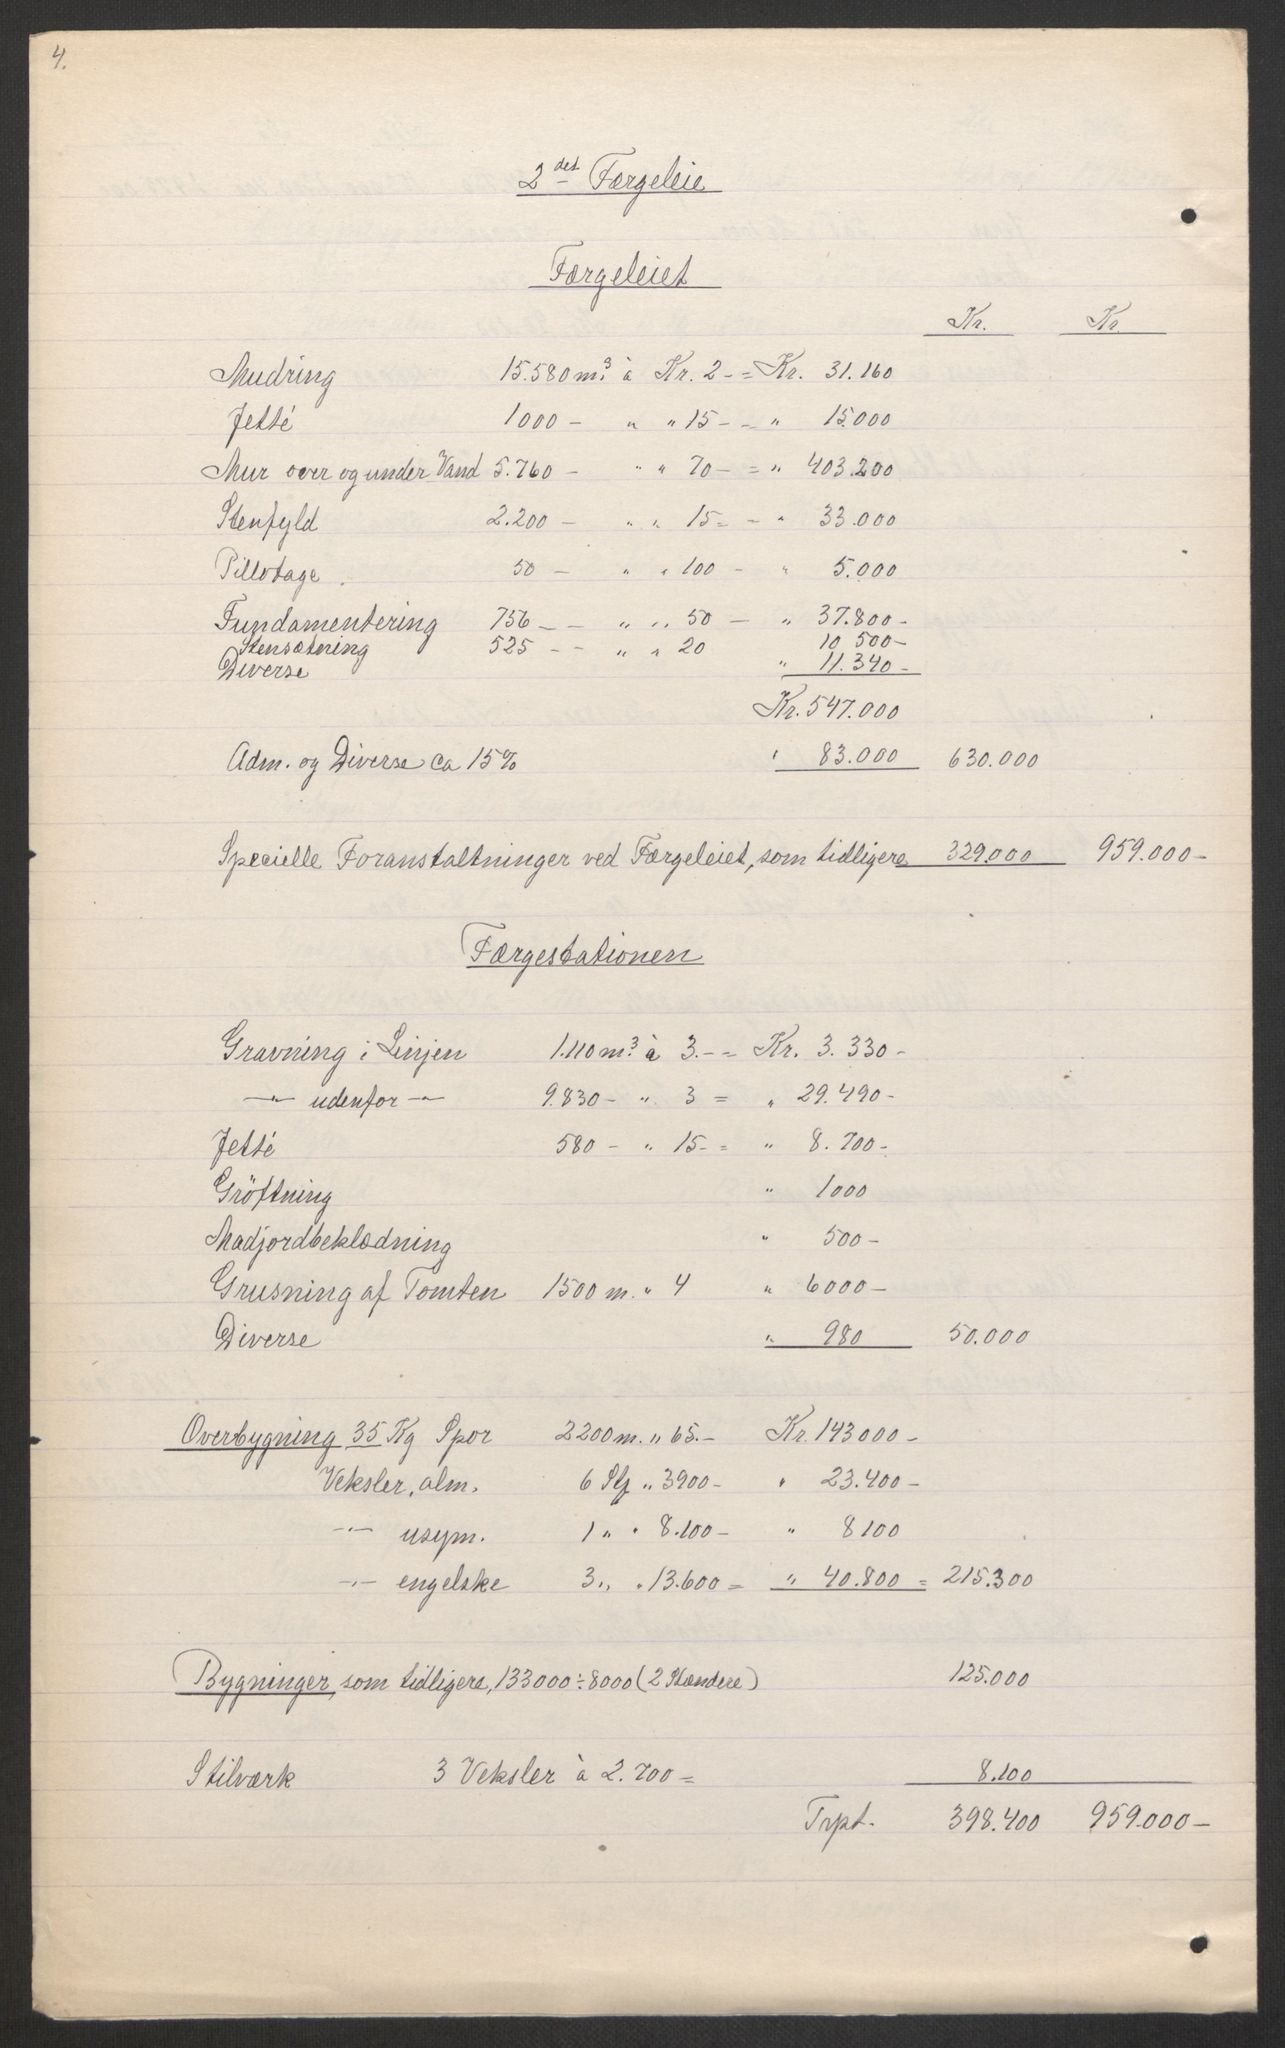 4.
2det Færgeleie
Færgeleiet
Kr. Kr.
Mudring 15.580 m.3 à Kr. 2 - = Kr. 31.160
Jetté 1000 - " " 15 - - " 15.000
Mur over og under Vand 5.760 - " " 70 - = " 403.200
Stenfyld 2.200 - " " 15 = - " 33.000
Pillotage. 50 - " " 100 - " 5.000
Fundamentering 756 - - " " 50 - " 37.800 -
Stensætning 525 - - " " 20 10 500 -
Diverse " 11.340 -
Kr. 547.000
Adm. og Diverse ca 15% " 83.000 630.000
Specielle Foranstaltninger ved Færgeleiet, som tidligere 329.000 959.000 -
Færgestationen
Gravning i Linjen 1.110 m.3 à 3.- = Kr. 3.330 -
-"- udenfor -"- 9.830 - " 3 = " 29.490 -
Jetté 580 - " 15 - = " 8.700 -
Gröftning " 1000
Madjordbeklædning " 500 -
Grusning af Tomten 1500 m. " 4 " 6000 -
Diverse " 980 50.000
Overbygning 35 Kg Spor 2200 m. " 65.- Kr. 143000 -
Veksler, alm. 6 Stk " 3900 - " 23.400 -
-"- usym. 1 " " 8.100 - " 8100
-"- engelske 3 " " 13.600 = " 40.800 = 215.300
Bygninger, som tidligere, 133000 ÷ 8000 (2 Standere) 125.000
Stilværk 3 Veksler à 2.700 = 8.100
Trpt. 398.400 959.000 -